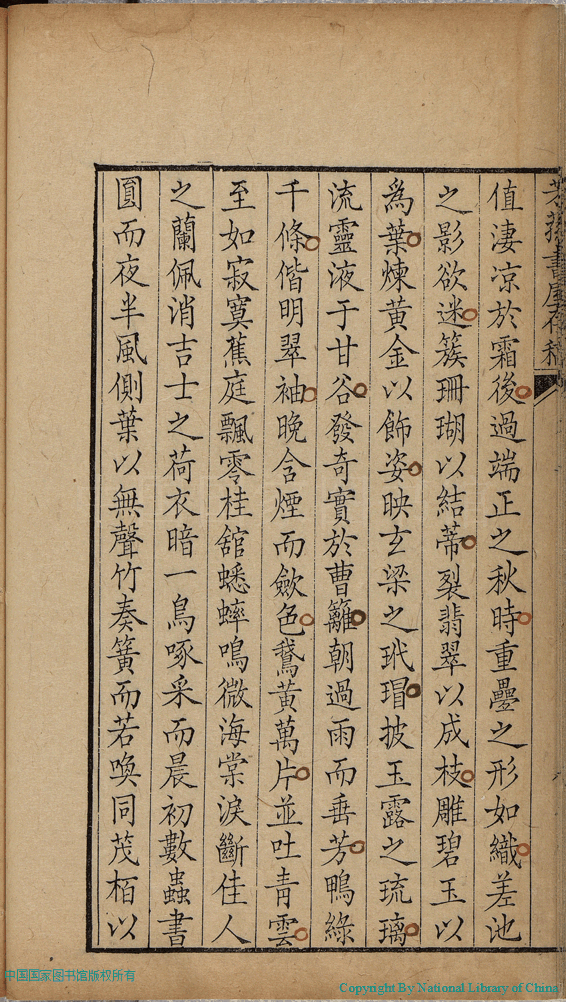 值淒凉於霜後過端正之秋時重疊之形如織差池
之影欲迷簇珊瑚以結蒂裂翡翠以成枝雕碧玉以
爲葉煉黃金以飾姿映玄梁之玳瑁披玉露之琉璃
流靈液于甘谷發奇實於曹籬朝過雨而垂芳鴨綠
千條偕明翠袖晚含煙而斂色鵞黃萬片並吐青雲
至如寂寞蕉庭飄零桂舘蟋蟀鳴微海棠淚斷佳人
之蘭佩消吉士之荷衣暗一鳥啄采而晨初數蟲書
圓而夜半風側葉以無聲竹奏簧而若喚同茂栢以
中国国家图书馆版权所有
Copyright By National Library of China